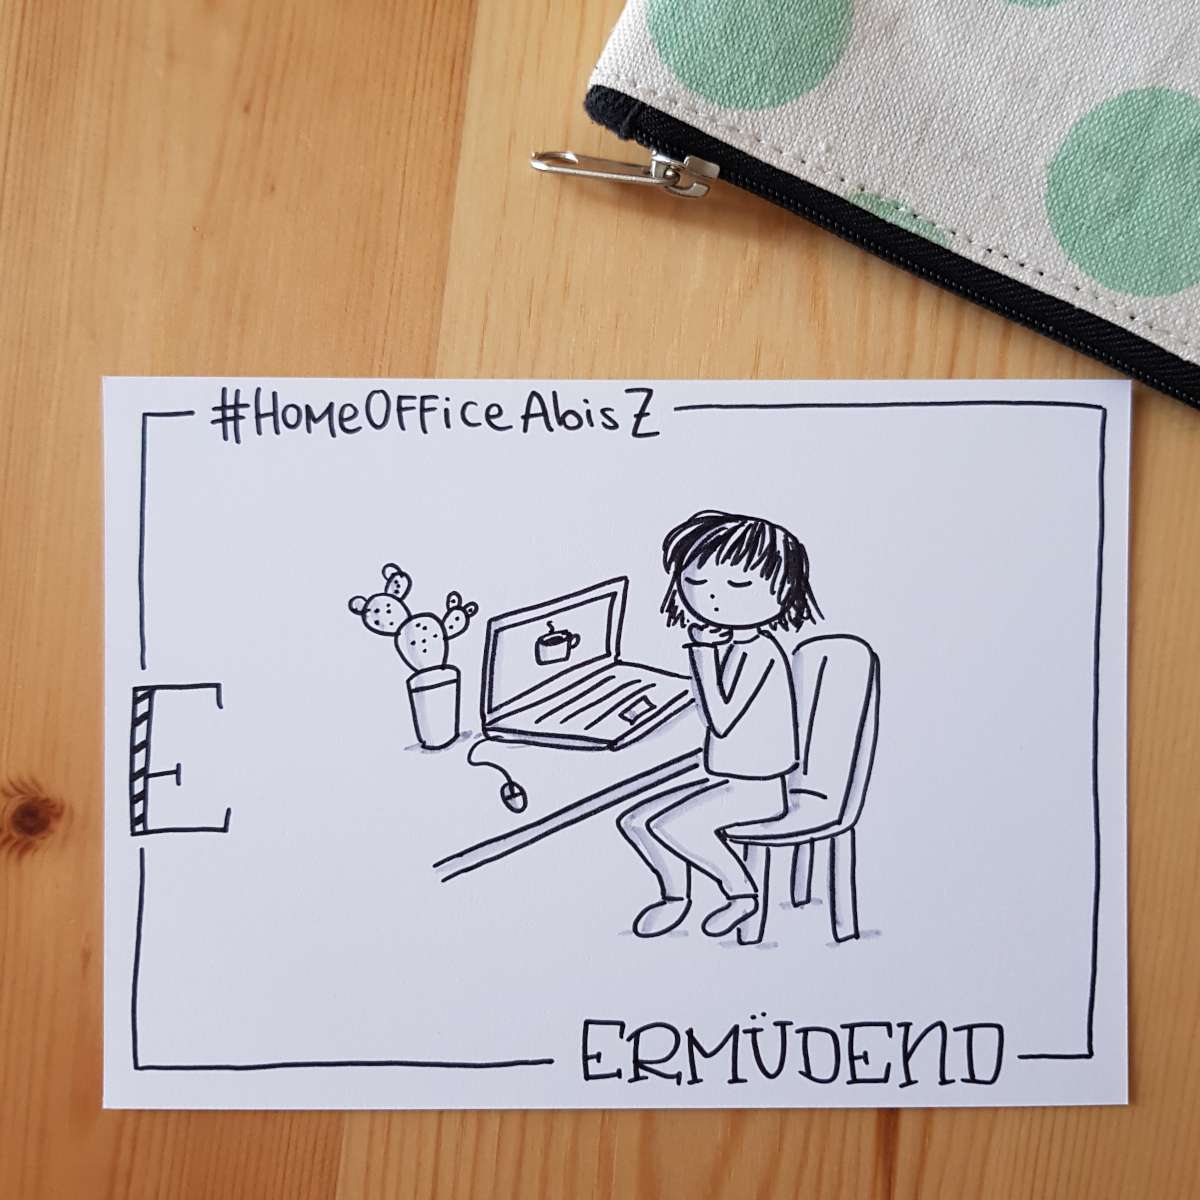 #HomeOffice AbisZ
E
ERMÜDEND